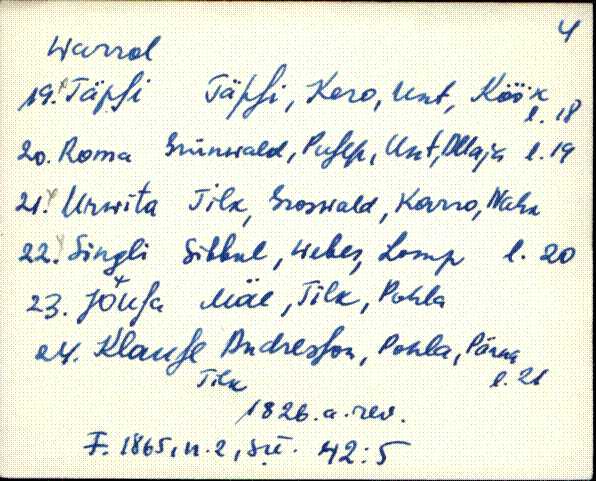 4
Warrol
19. Täpsi Täpsi, Karo, Unt, Köök l. 18
20. Roma Grünwald, Pusep, Unt, Ollaja l. 19
21. Urwita Tilk, Groswald, Karro, Nahk
22. Singli Sibbul, Weber, Lomp l. 20
23. Jõusa Mäe, Tilk, Pohla
24. Klause Andresson, Pohla, Pärna
Tilk l. 21
1826. a. rev.
F. 1865, n. 2, sü. 42:5